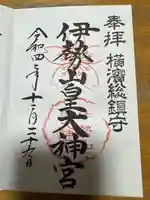 奉拝 横濱総鎮守
伊勢山皇大神宮
令和四年十二月二十六日